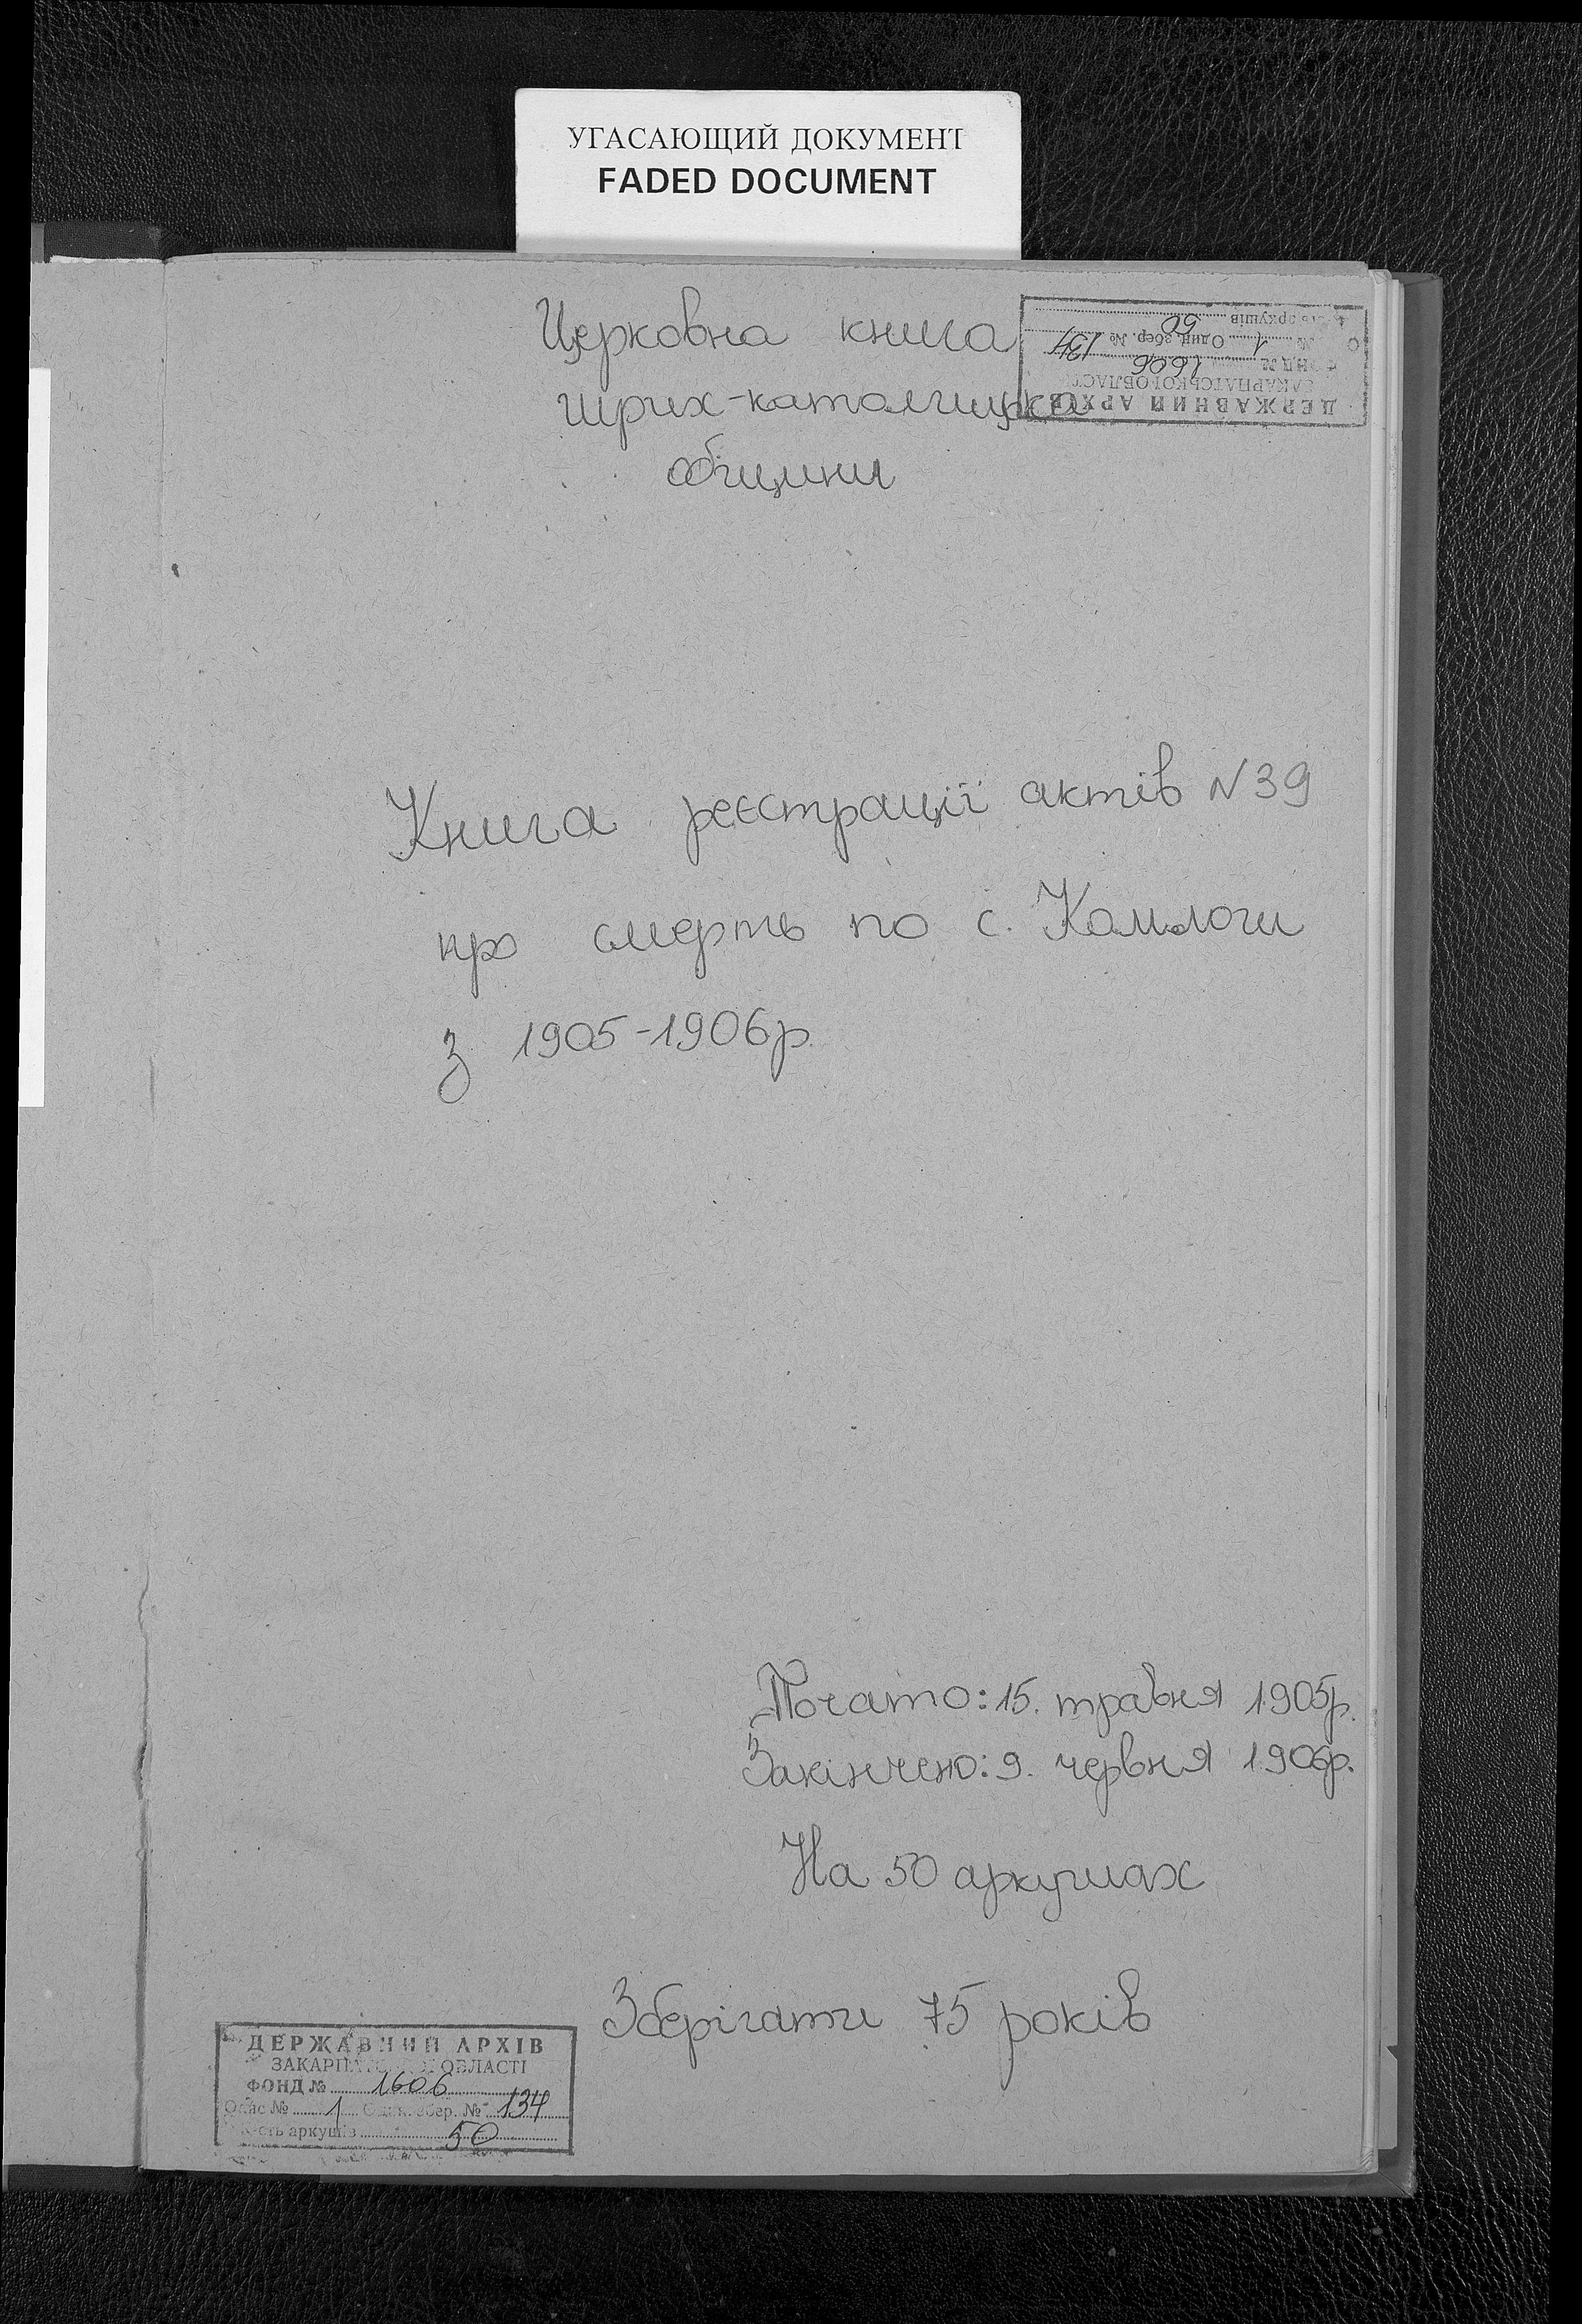 УГАСАЮЩИЙ ДОКУМЕНТ
FADED DOCUMENT
Церковна книга
общини
ДЕРЖАВНИЙ АРХІВ
ЗАКАРПАТСЬКОЇ ОБЛАСТІ
1606
1 Один. збер. № 134
аркушів 50
Книга реєстрації актів N 39
про смерть по с.
з 1905-1906р.
Почато: 15. травня 1905р.
Закінчено: 9. червня 1906р.
На 50 аркушах
Зберігати 75 років
ДЕРЖАВНИЙ АРХІВ
ЗАКАРПАТСЬКОЇ ОБЛАСТІ
ФОНД № 1606
Опис № 1 Один. збер. № 134
аркушів 50